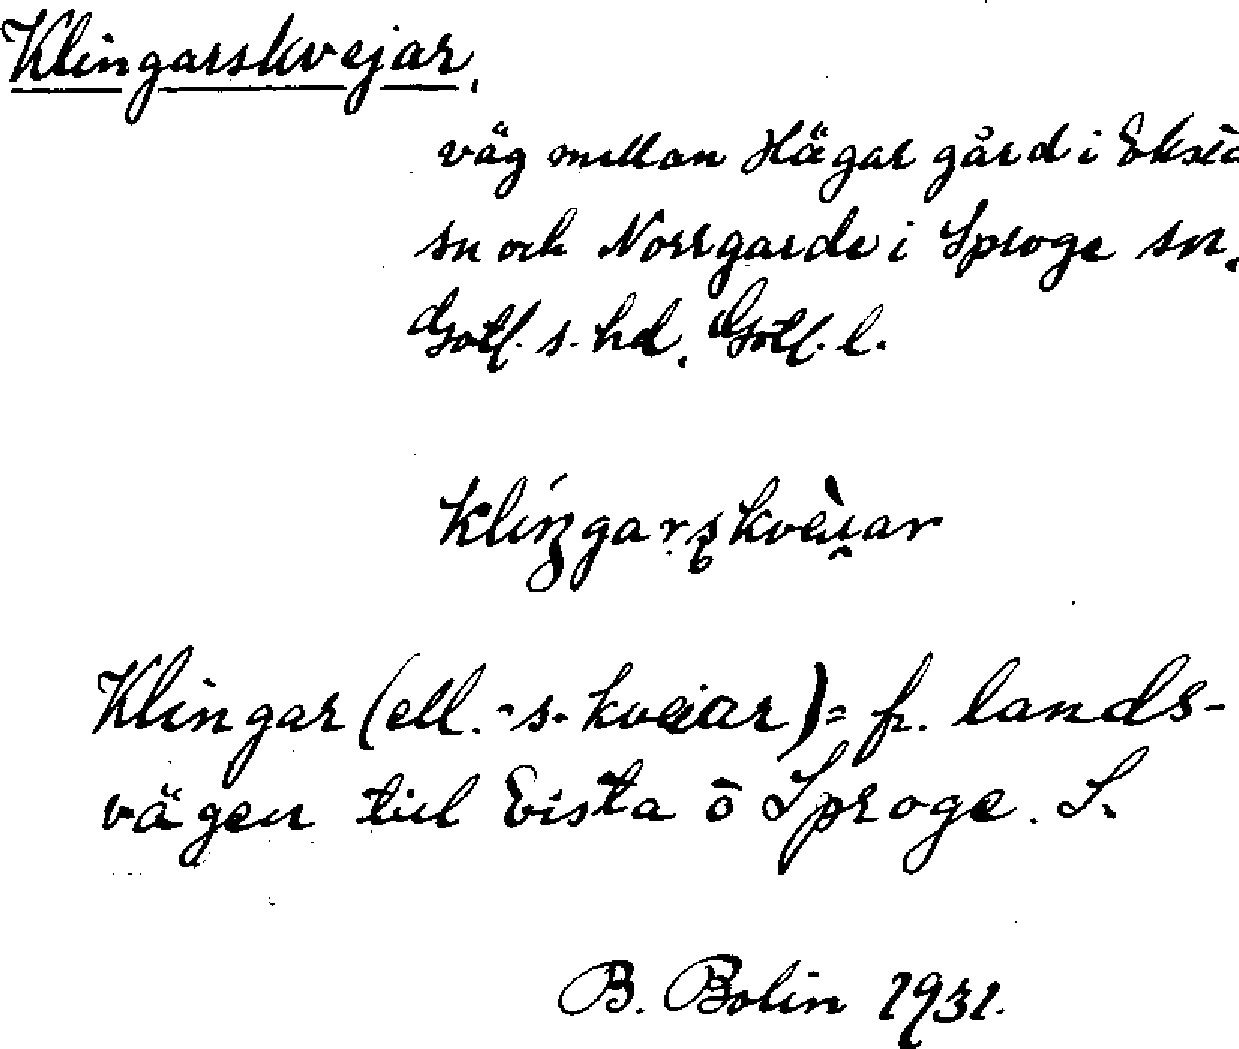 Klingarskvejar.
väg mellan Hägar gård i Eksta
sn och Norrgarde i Sproge sn.
Gotl. s. hd. Gotl. l.
klíŋgarskvèi̯ar
Klingar (ell. -s- kveiar) = fr. lands-
vägen till Eista ö Sproge. S.
B. Bolin 1931.